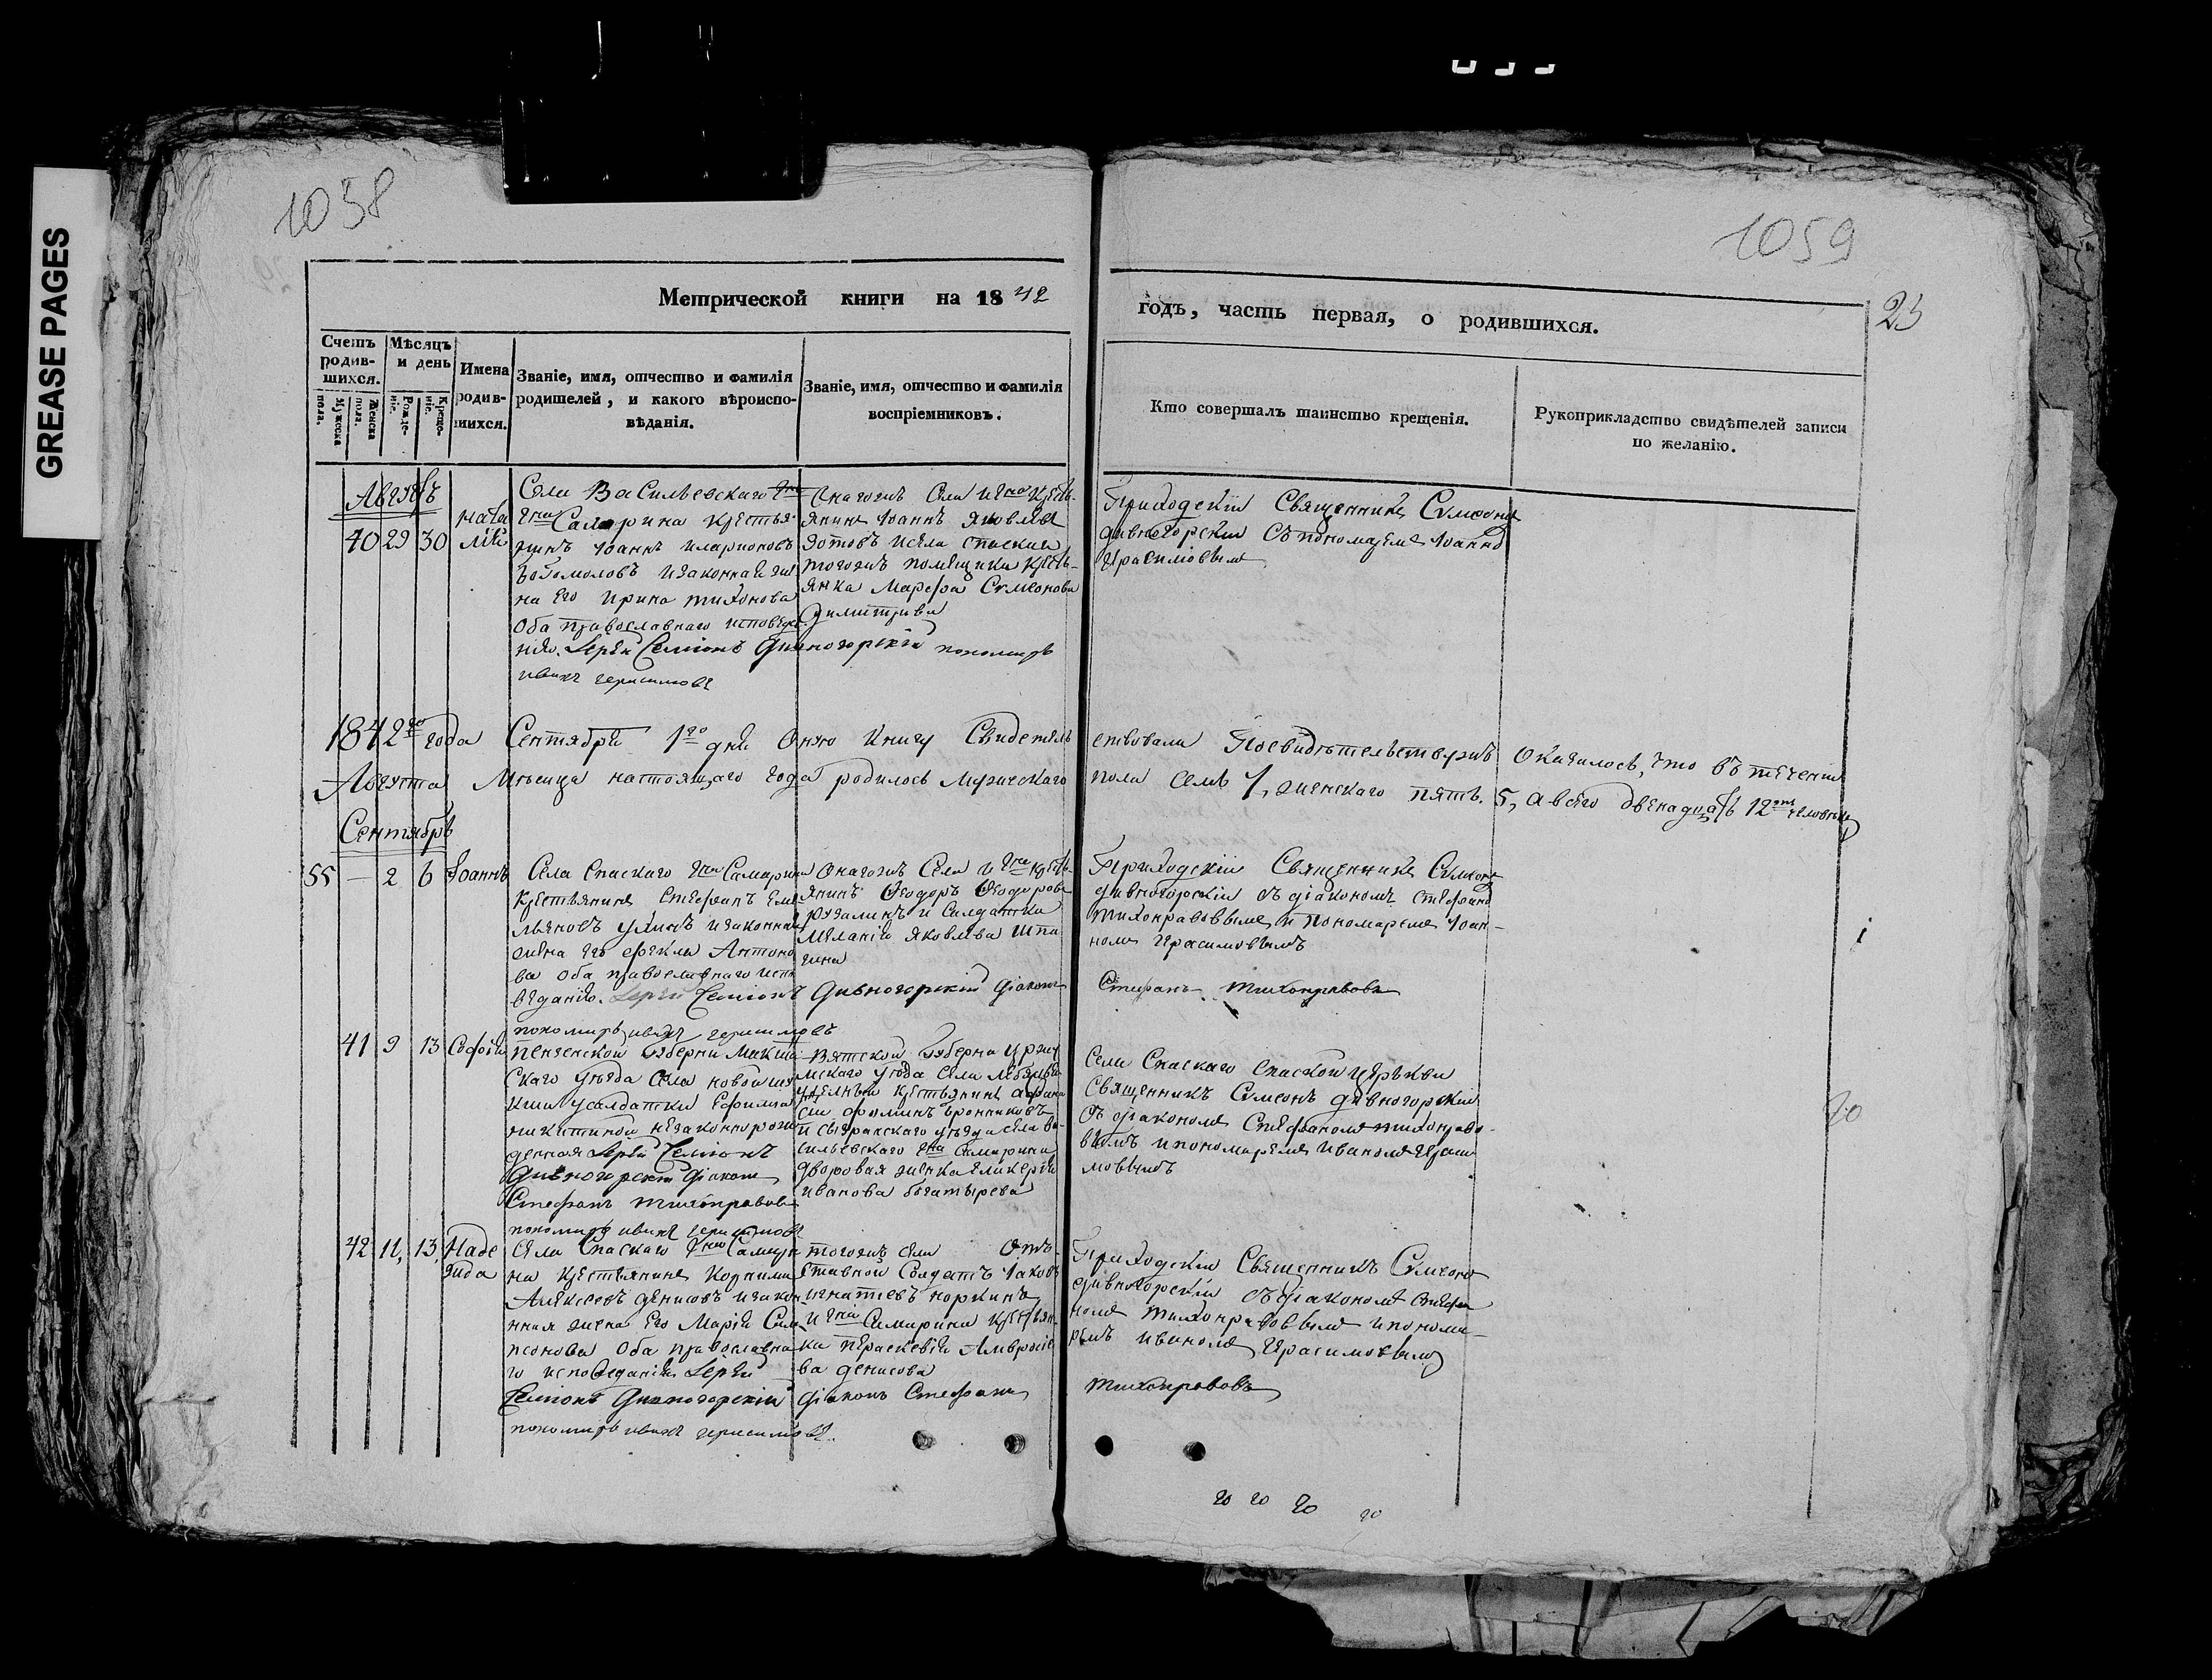 GREASE PAGES
1058
1059
Метрической книги на 1842
годъ, часть первая, о родившихся.
23
Счетъ родив-шихся.
Мужеска пола.
Женска пола.
Мѣсяцъ и день
Рожде-нiе.
Креще-нiе.
Имена родив-шихся.
Званiе, имя, отчество и фамилiя
родителей, и какого вѣроиспо-
вѣданiя.
Званiе, имя, отчество и фамилiя
воспрiемниковъ.
Кто совершалъ таинство крещенiя.
Рукоприкладство свидѣтелей записи
по желанiю.
Августъ
40 29 30 Ната
лiя
Села Васильевскаго Гна
Гна Самарина крестья-
нинъ Иоаннъ Иларионовъ
Богомоловъ и законная же
на его Ирина Тихонова
оба православнаго исповѣда
нiя. Iерей Семiонъ Дивногорскiй пономарь
иванъ герасимовъ
Онагожъ села и Гна кресть-
янинъ Иоаннъ Яковлевъ
Зотовъ и села спаскаго
тогожъ помещика кресть-
янка Марефа Сумеонова
Димитрива
Приходскiй Священникъ Сумеонъ
дивногорскiй съ пономаремъ Иоанно
Герасимовымъ
1842го года Сентября 1го дня Оную Книгу Свидетель
ствовали По свидѣтельству жъ Оказалось, что въ теченiи
Августа Мѣсяца настоящаго года родилось Мужескаго
пола семь 7, женскаго пять. 5, а всего двенадцать 12ть человѣкъ
Сентябрь
55 — 2 6 Iоаннъ
Села Спаскаго Гна Самарина
Крестьянинъ Стефанъ Еме-
льяновъ и законная
жена его Фекла Антоно
ва оба православнаго испо
вѣданiя. Iерей Семiонъ Дивногорскiй дiаконъ
Стефанъ Тихонравовъ
пономарь иванъ герасимовъ
Онагожъ Села и Гна кресть
янинъ Феодоръ Феодоровъ
и Салдатка
Меланiя Яковлева
Приходскiй Священникъ Сумеонъ
дивногорскiй съ дiакономъ Стефано
Тихонравовымъ и Пономаремъ Иоан-
номъ Герасимовымъ
41 9 13 Софiя
Пензенской Губернiи Мокша
скаго уѣзда Села
Усалдатки Ефимiи
никитиной незаконнорож
денная Iерей Семiонъ
Дивногорскiй дiаконъ
Стефанъ Тихонравовъ
пономарь иванъ герасимовъ
Вятской Губернiи Уржу
мскаго уѣзда Села
удельный крестьянинъ Афана
сiй Фоминъ Бронниковъ
и Сызранскаго уѣзда Села Ва-
сильевскаго Гна Самарина
дворовая женка Гликерiя
Иванова Богатырева
Села Спаскаго Спаской Церькви
Священникъ Сумеонъ дивногорскiй
съ дiакономъ Стефаномъ Тихонраво-
вымъ и пономаремъ Иваномъ Гераси
мовымъ
42 11, 13, Наде
жда
Села Спаскаго Гна Самари
на Крестьянинъ Корнилiй
Алексеевъ Денисовъ и закон
нная жена его Марiя Сам
псонова оба православна
го исповеданiя Iерей
Семiонъ Дивногорскiй дiаконъ Стефанъ
Тихонравовъ
пономарь иванъ герасимовъ.
тогожъ села Отъ-
ставной Солдатъ Iаковъ
Игнатьевъ Норкинъ
и Гна Самарина Крестьян-
ка Параскевiя Амвросiе
ва Денисова
Приходскiй Священникъ Сумеонъ
дивногорскiй съ дiакономъ Стефа
номъ Тихонравовымъ и понома-
ремъ Иваномъ Герасимовымъ
20
20 20 20 20